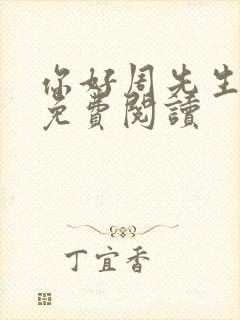 你好周先生
免費閱讀
丁宜香